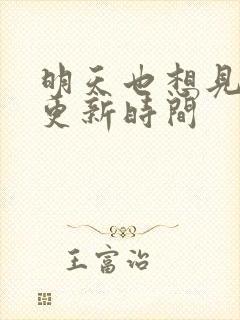 明天也想見
更新時間
王富治